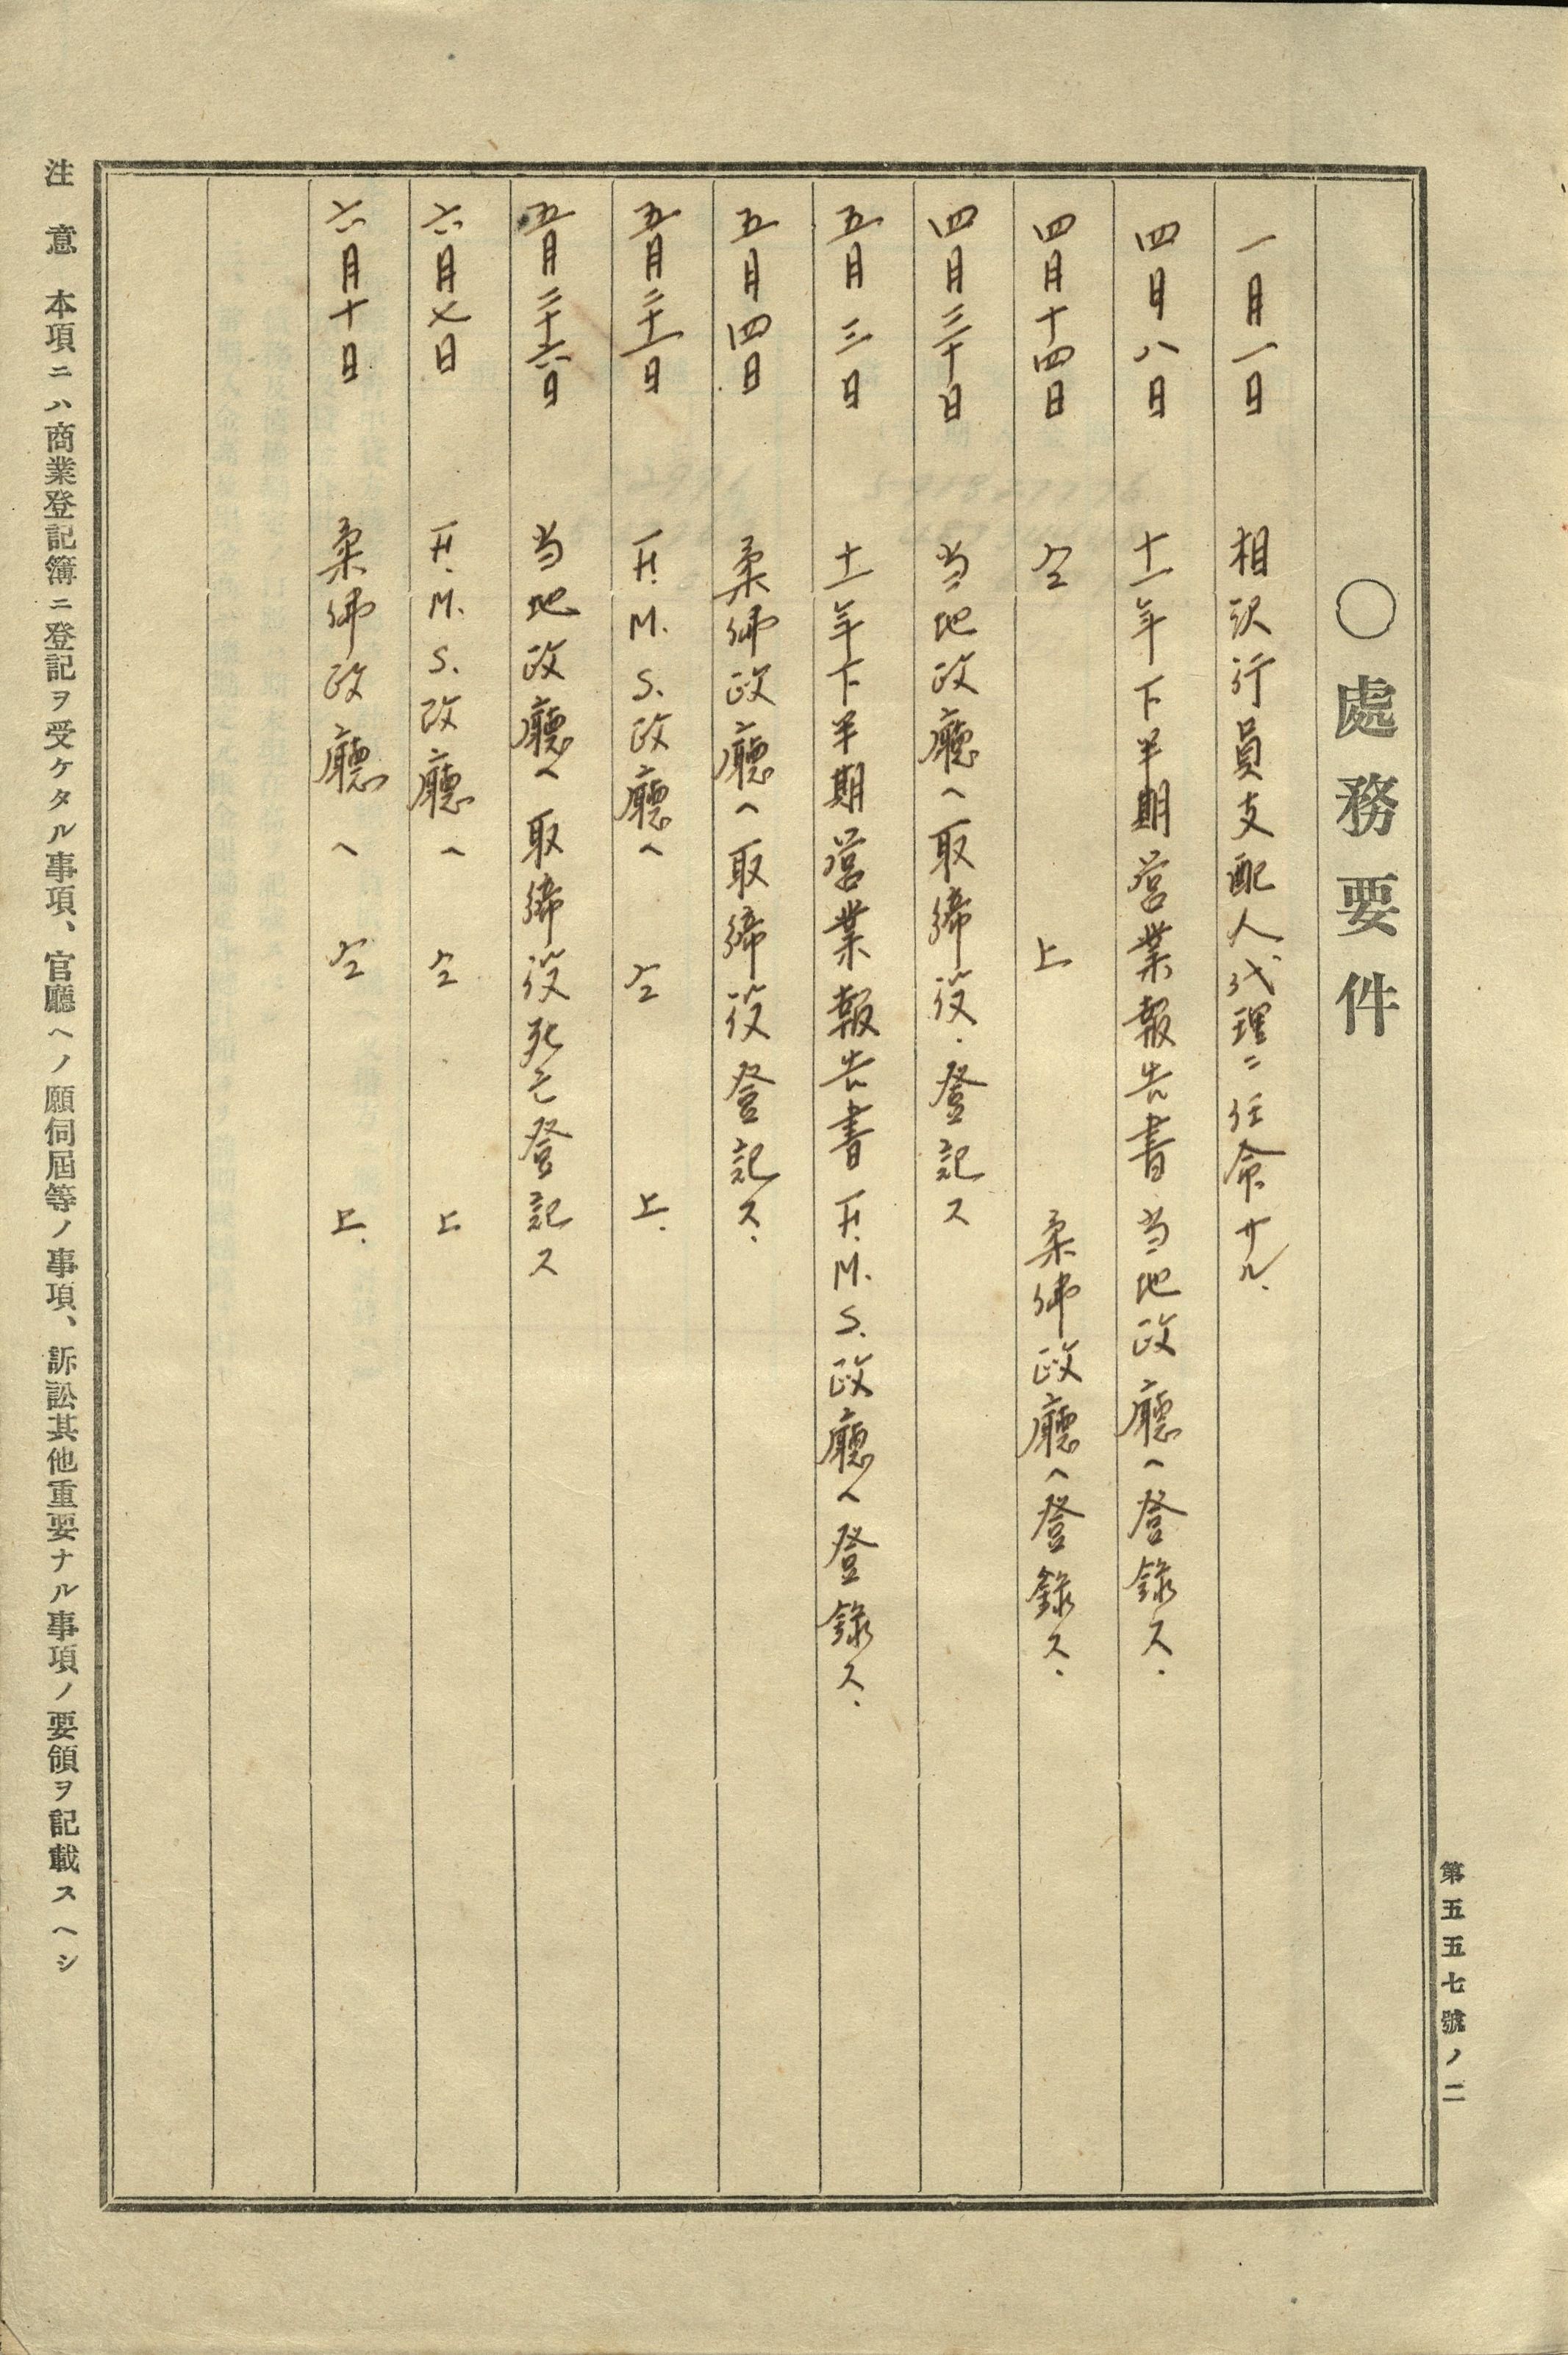 第五五七號ノ二
〇處務要件
一月一日 相沢行員支配人代理ニ任命サル.
四月八日 十一年下半期営業報告書当地政廳ヘ登録ス.
四月十四日 仝上 柔佛政廳ヘ登録ス.
四月三十日 当地政廳ヘ取締役登記ス
五月三日 十一年下半期営業報告書F.M.S.政廳ヘ登録ス.
五月四日 柔佛政廳ヘ取締役登記ス.
五月二十一日 F.M.S.政廳ヘ仝上.
五月二十六日 当地政廳ヘ取締役死亡登記ス
六月七日 F.M.S.政廳ヘ仝上
六月十日 柔佛政廳ヘ仝上.
注意 本項ニハ商業登記簿ニ登記ヲ受ケタル事項、官廳ヘノ願伺屆等ノ事項、訴訟其他重要ナル事項ノ要領ヲ記載スヘシ